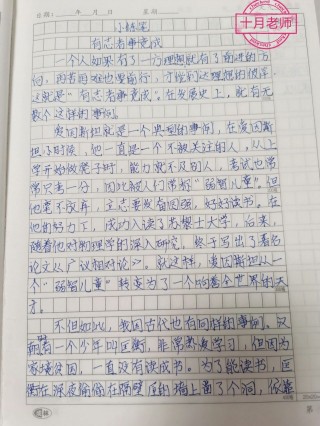 日期: 年 月 日 星期
十月老师
小练笔
有志者事竟成
一个人如果有了一方理想就有了前进的方
向,再苦再难也要前行,才能到达理想的彼岸。
这就是"有志者事竟成"。在发展史上,就有无
数个这样的事例。
爱因斯坦就是一个典型的事例,在爱因斯
坦小时候,他一直是一个不被关注的人,从上
学开始做凳子时,能力就不及别人,考试也常
常只考一分,因此被人们常称"弱智儿童"。但
他毫不放弃,立志要发奋图强,好好读书。在
他的努力下,成功入读了苏黎士大学,后来,
随着他对物理学的深入研究,终于写出了著名
论文《广义相对论》。就这样,爱因斯坦从一
个"弱智儿童"转变为了一个响誉全世界的天
才。
不但如此,我国古代也有同样的事例。汉
朝有一个少年叫匡衡,非常热爱学习,但因为
家境贫困,一直没有读成书。为了能读书,匡
衡在深夜偷偷在隔壁屋的墙上凿了个洞,依靠